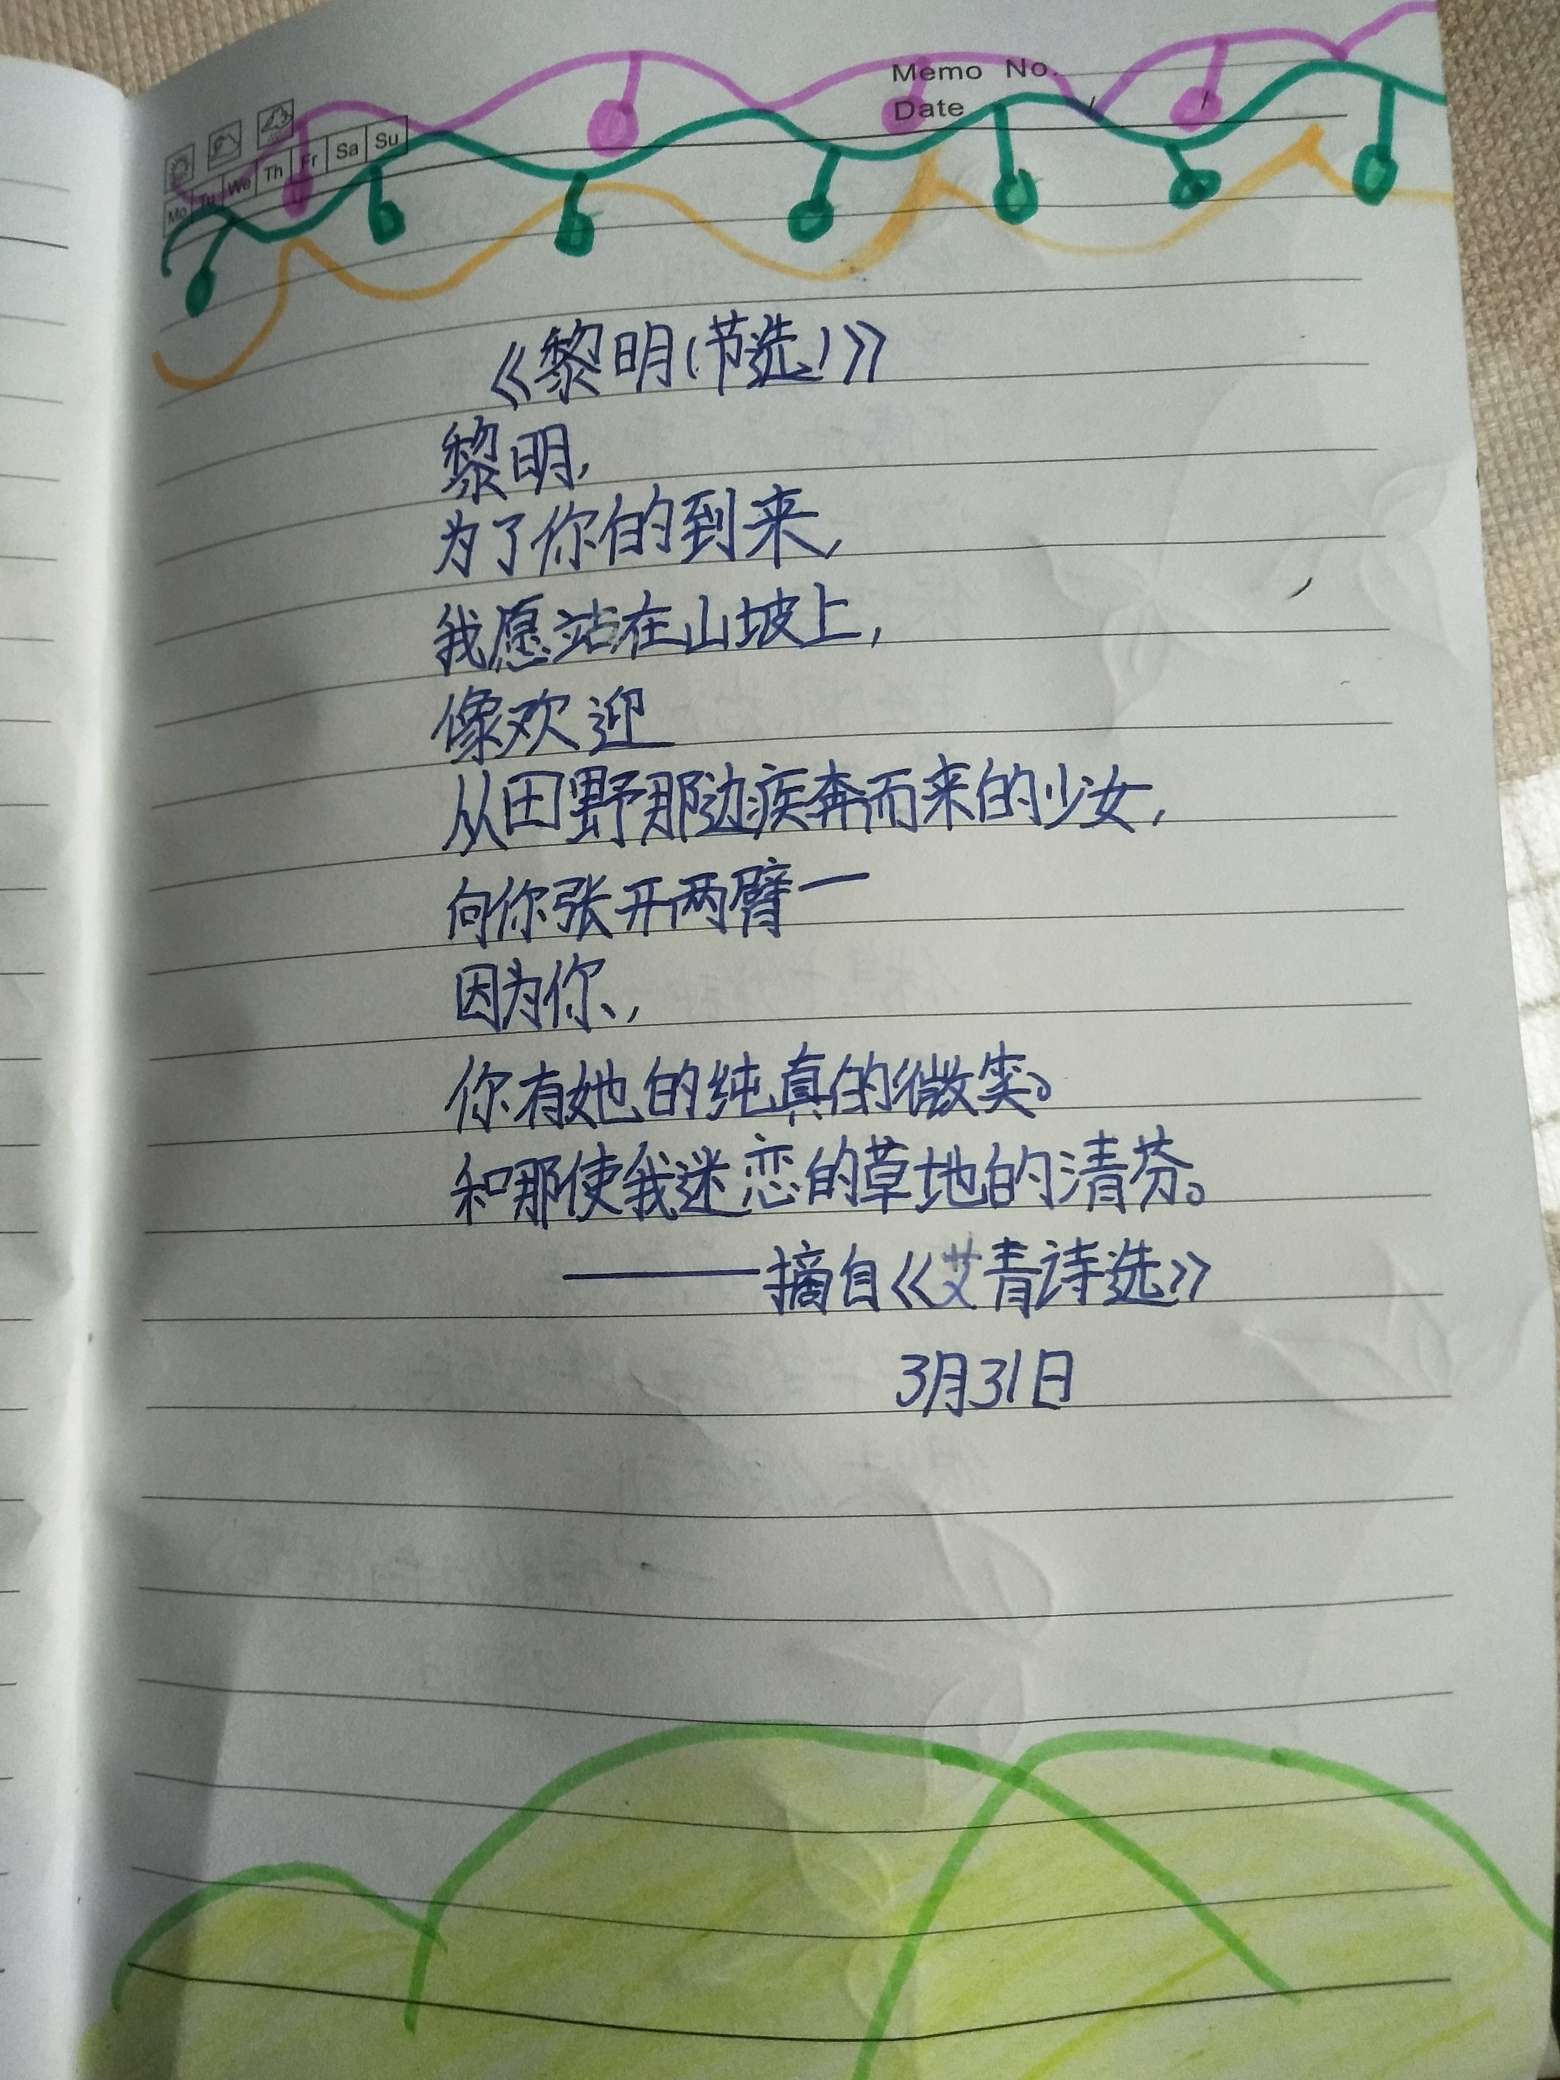 Memo No.
Date
Mo Tu We Th Fr Sa Su
《黎明(节选)》
黎明,
为了你的到来,
我愿站在山坡上,
像欢迎
从田野那边疾奔而来的少女,
向你张开两臂—
因为你、,
你有她的纯真的微笑。
和那使我迷恋的草地的清芬。
——摘自《艾青诗选》
3月31日